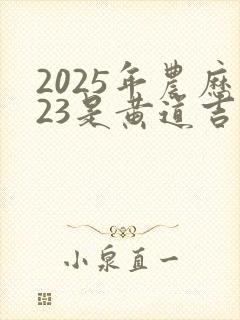 2025年農历
23是黄道吉
小泉直一